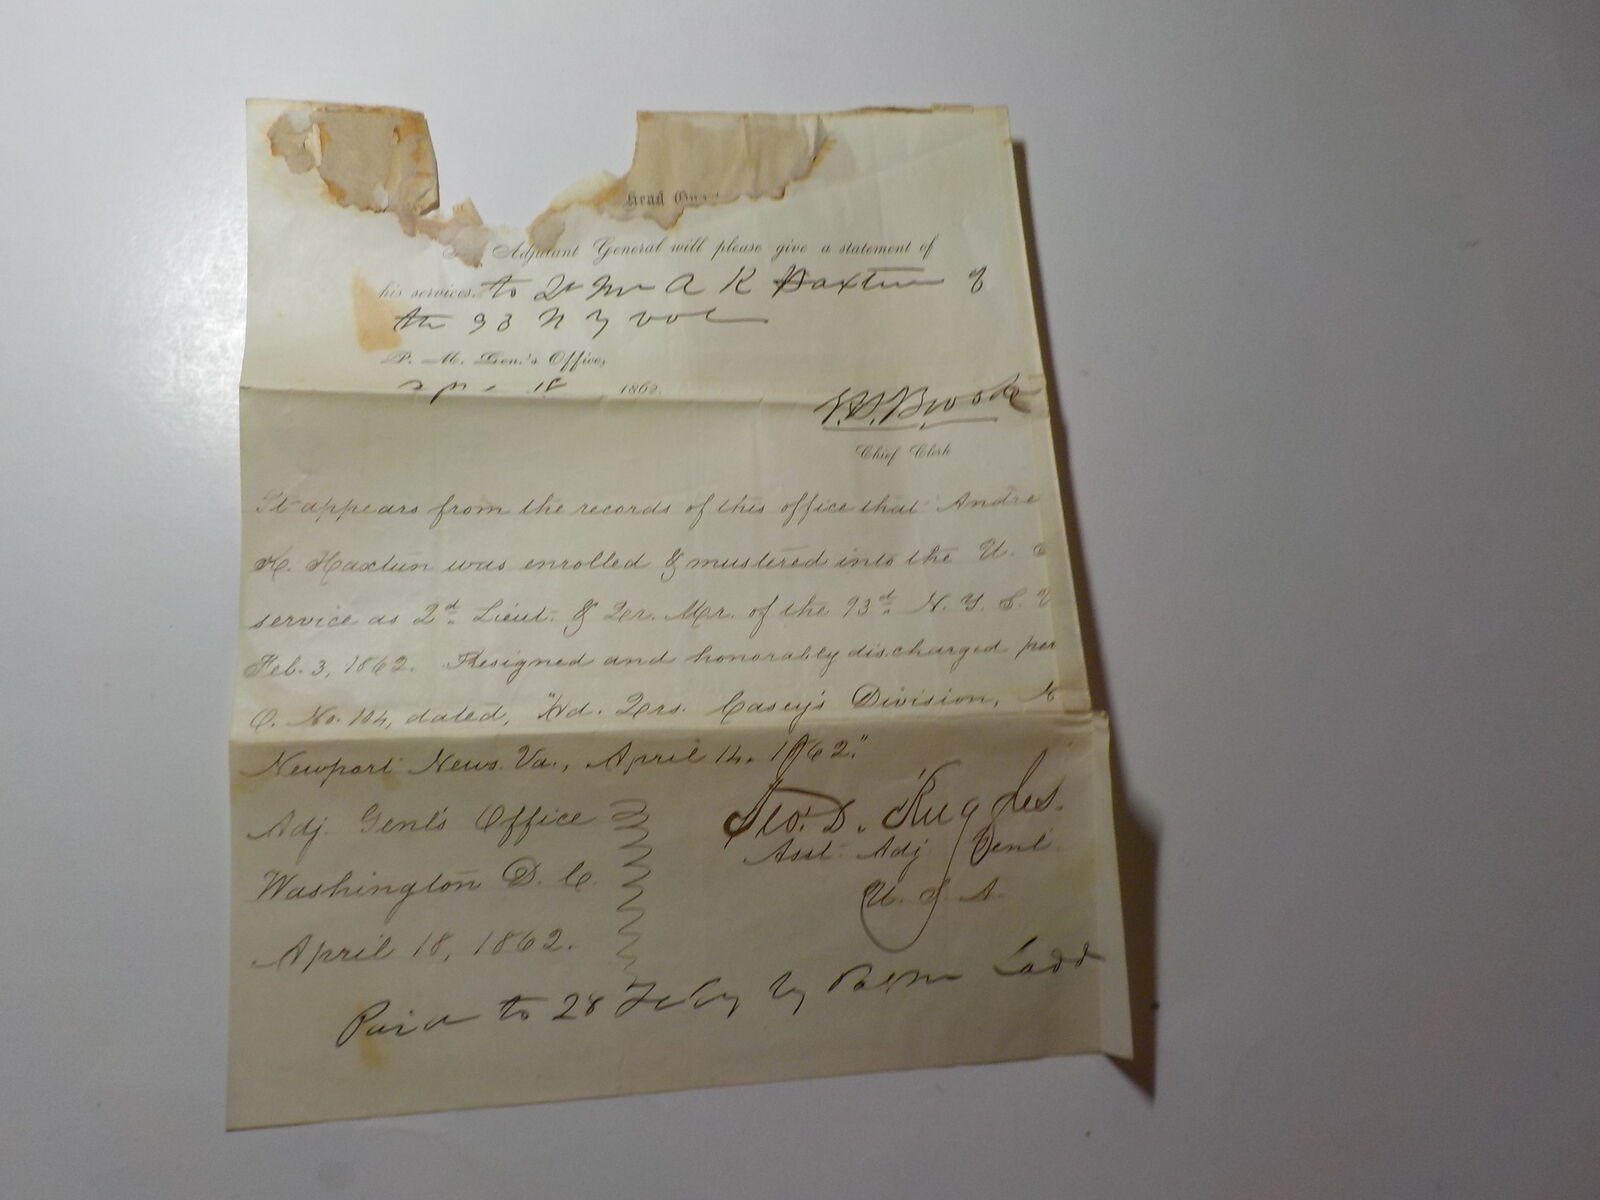 Head
Adjutant General will please give a statement of
his services. to Qr Mr A K Haxtun of
the 93 N Y vol
P. M. Gen.'s Office,
18 1862.
Brooks
Chief Clerk
It appears from the records of this office that Andre
K. Haxtun was enrolled & mustered into the U.
service as 2d Lieut. & Qr. Mr. of the 93d N. Y. S. V
Feb. 3, 1862. Resigned and honorably discharged per
O. No. 104, dated, "Hd. Qrs. Casey's Division, N
Newport News Va., April 14, 1862."
Adj. Genl's Office
Geo. D. Ruggles.
Asst. Adj. Genl.
Washington D. C.
U. S. A.
April 18, 1862.
Paid to 28 Feby by Ladd